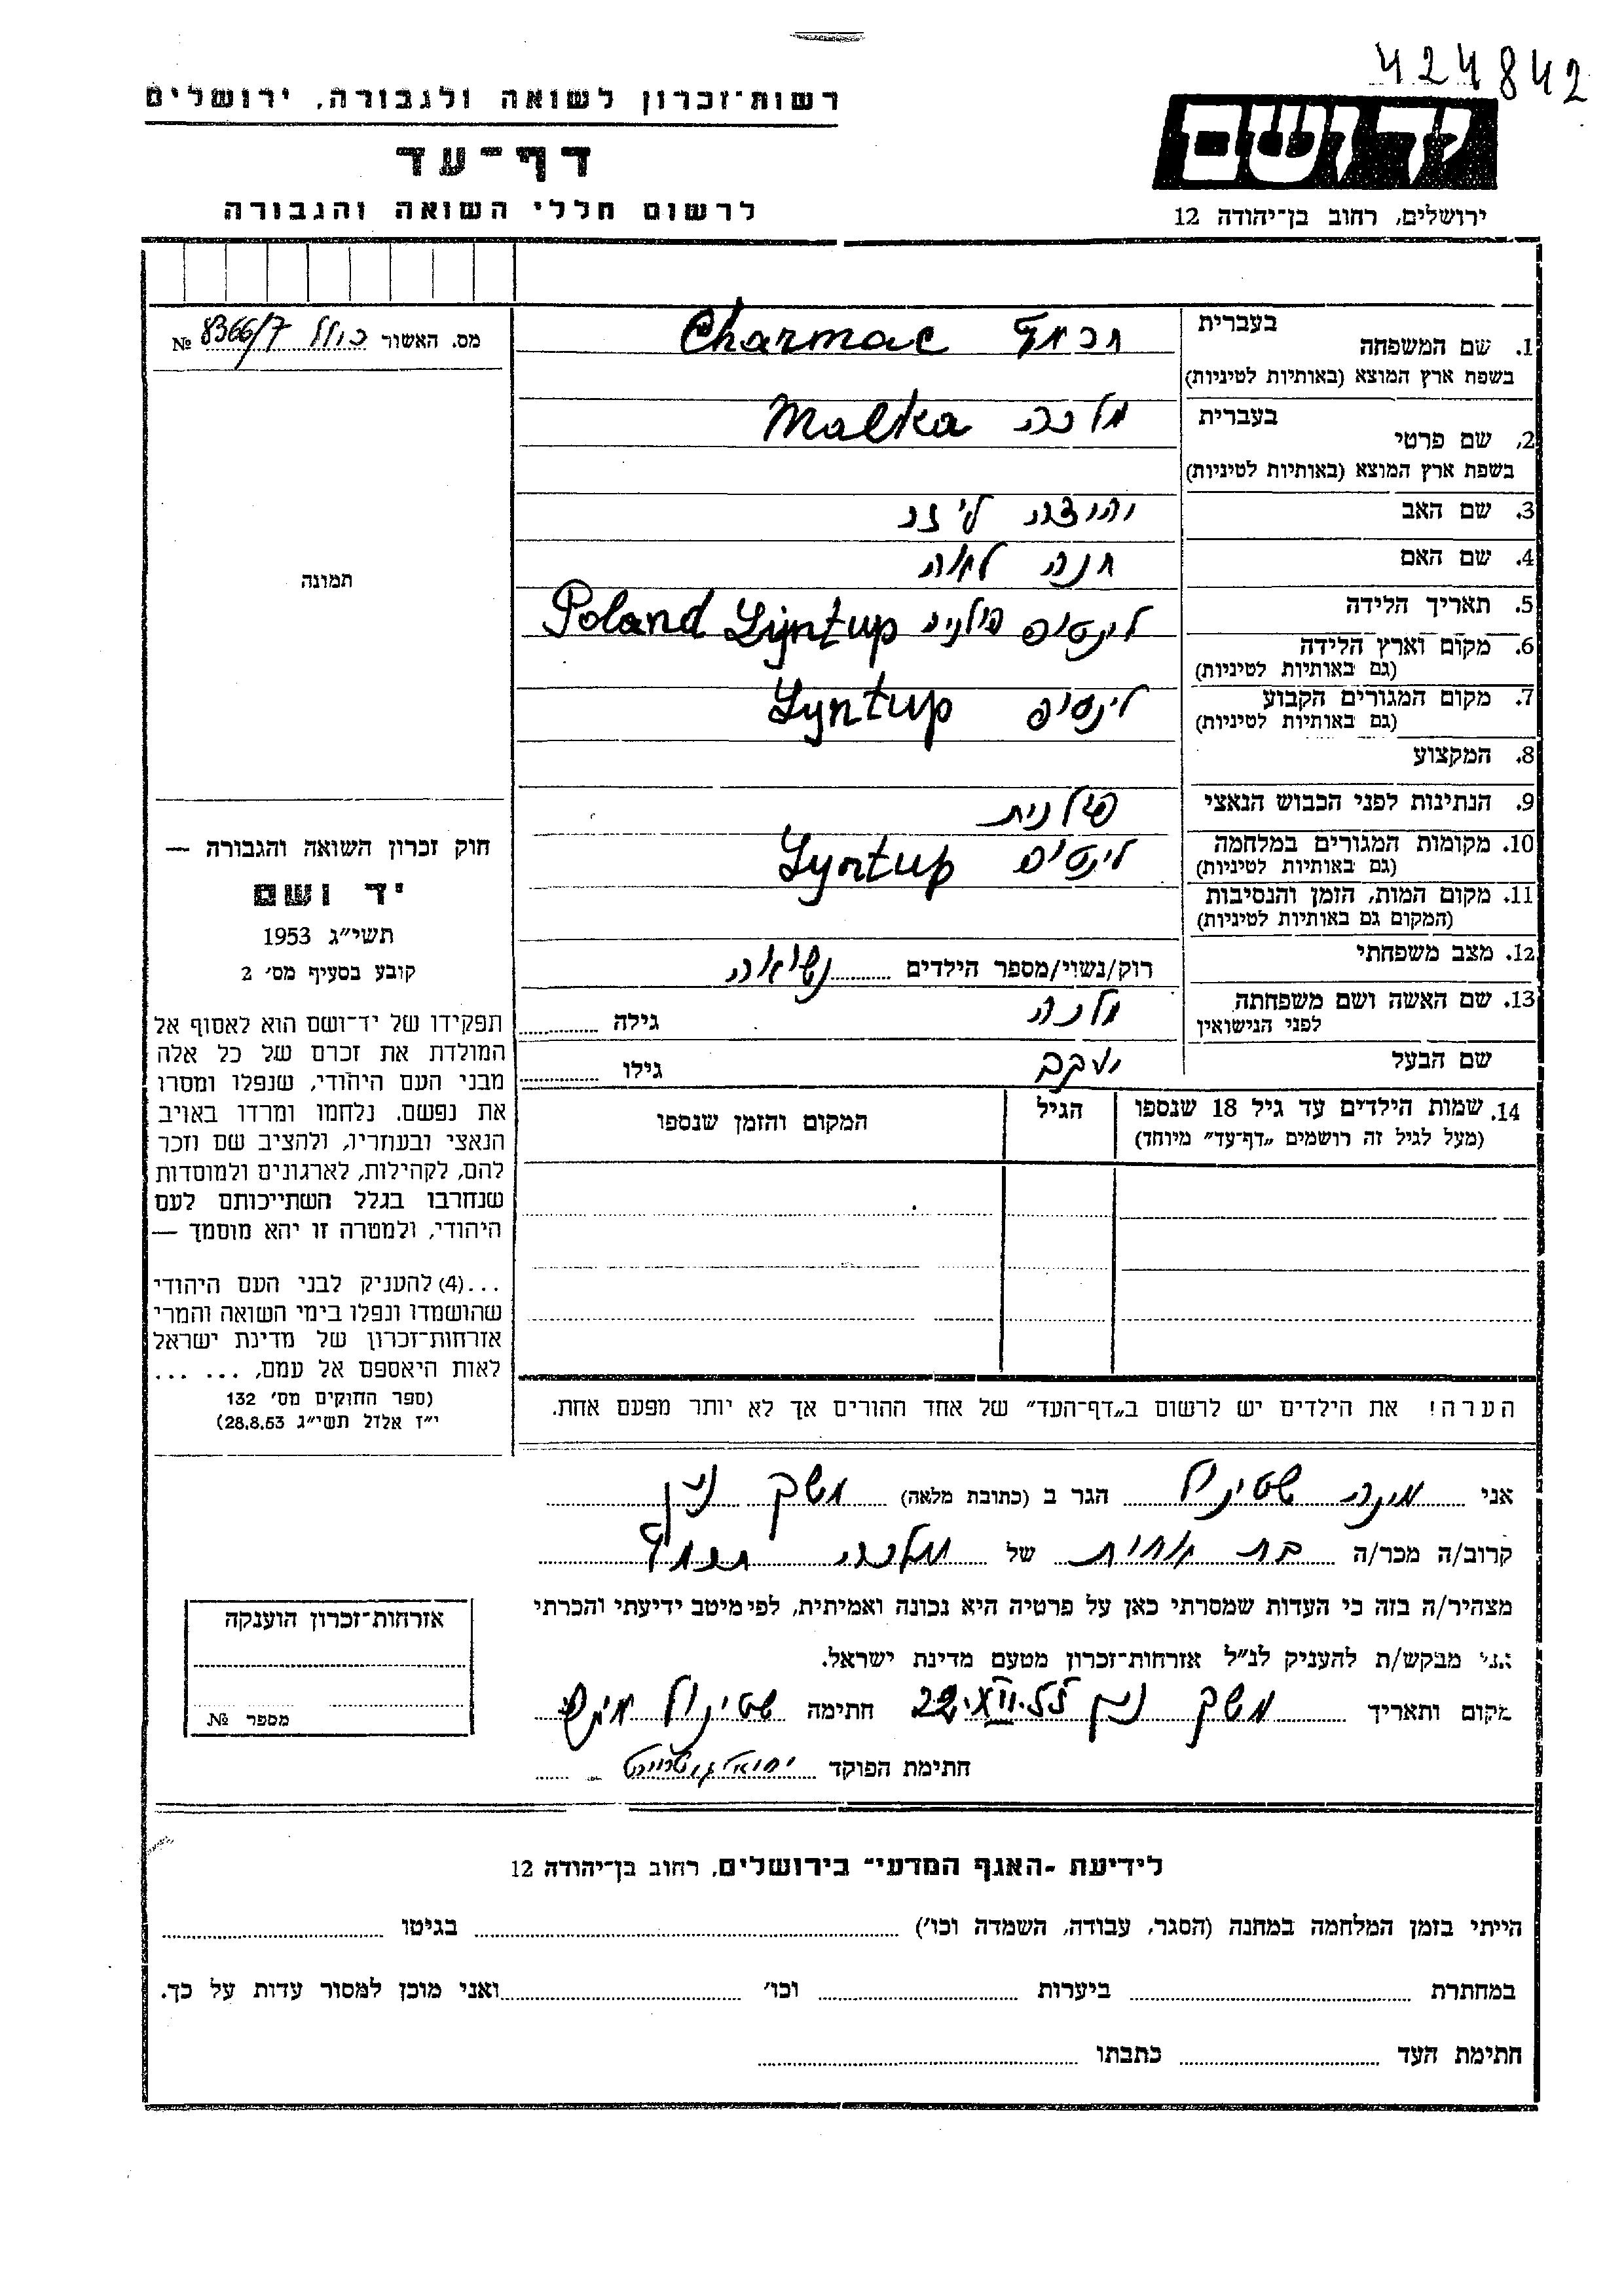 424842
רשות־זכרון לשואה ולגבורה, ירושלים
יד ושם
דף־עד
לרשום חללי השואה והגבורה
ירושלים, רחוב בן־יהודה 12
מס. האשור כולל 8366/7 №
בעברית
1. שם המשפחה Charmac
בשפת ארץ המוצא (באותיות לטיניות)
בעברית
2. שם פרטי מלכה Malka
בשפת ארץ המוצא (באותיות לטיניות)
3. שם האב
4. שם האם חנה לאה
תמונה
5. תאריך הלידה
6. מקום וארץ הלידה לינטופ פולניה Lyntup Poland
(גם באותיות לטיניות)
7. מקום המגורים הקבוע לינטופ Lyntup
(גם באותיות לטיניות)
8. המקצוע
9. הנתינות לפני הכבוש הנאצי פולנית
10. מקומות המגורים במלחמה לינטופ Lyntup
(גם באותיות לטיניות)
11. מקום המות, הזמן והנסיבות
(המקום גם באותיות לטיניות)
12. מצב משפחתי רוק/נשוי/מספר הילדים נשואה
13. שם האשה ושם משפחתה מלכה גילה
לפני הנישואין
שם הבעל יעקב גילו
14. שמות הילדים עד גיל 18 שנספו הגיל המקום והזמן שנספו
(מעל לגיל זה רושמים „דף־עד” מיוחד)
חוק זכרון השואה והגבורה —
יד ושם
תשי״ג 1953
קובע בסעיף מס׳ 2
תפקידו של יד־ושם הוא לאסוף אל
המולדת את זכרם של כל אלה
מבני העם היהודי, שנפלו ומסרו
את נפשם. נלחמו ומרדו באויב
הנאצי ובעוזריו, ולהציב שם וזכר
להם, לקהילות, לארגונים ולמוסדות
שנחרבו בגלל השתייכותם לעם
היהודי, ולמטרה זו יהא מוסמך —
...(4) להעניק לבני העם היהודי
שהושמדו ונפלו בימי השואה והמרי
אזרחות־זכרון של מדינת ישראל
לאות היאספם אל עמם, ... ...
(ספר החוקים מס׳ 132
י״ז אלול תשי״ג 28.8.53)
הערה! את הילדים יש לרשום ב„דף־העד” של אחד ההורים אך לא יותר מפעם אחת.
אני שטינול הגר ב (כתובת מלאה) משק
קרוב/ה מכר/ה בת אחות של מלכה
מצהיר/ה בזה כי העדות שמסרתי כאן על פרטיה היא נכונה ואמיתית, לפי מיטב ידיעתי והכרתי
אני מבקש/ת להעניק לנ״ל אזרחות־זכרון מטעם מדינת ישראל.
מקום ותאריך משק 22.XII.55 חתימה שטינול
חתימת הפוקד
אזרחות־זכרון הוענקה
מספר №
לידיעת ״האגף המדעי״ בירושלים, רחוב בן־יהודה 12
הייתי בזמן המלחמה במחנה (הסגר, עבודה, השמדה וכו׳) בגיטו
במחתרת ביערות וכו׳ ואני מוכן למסור עדות על כך.
חתימת העד כתבתו